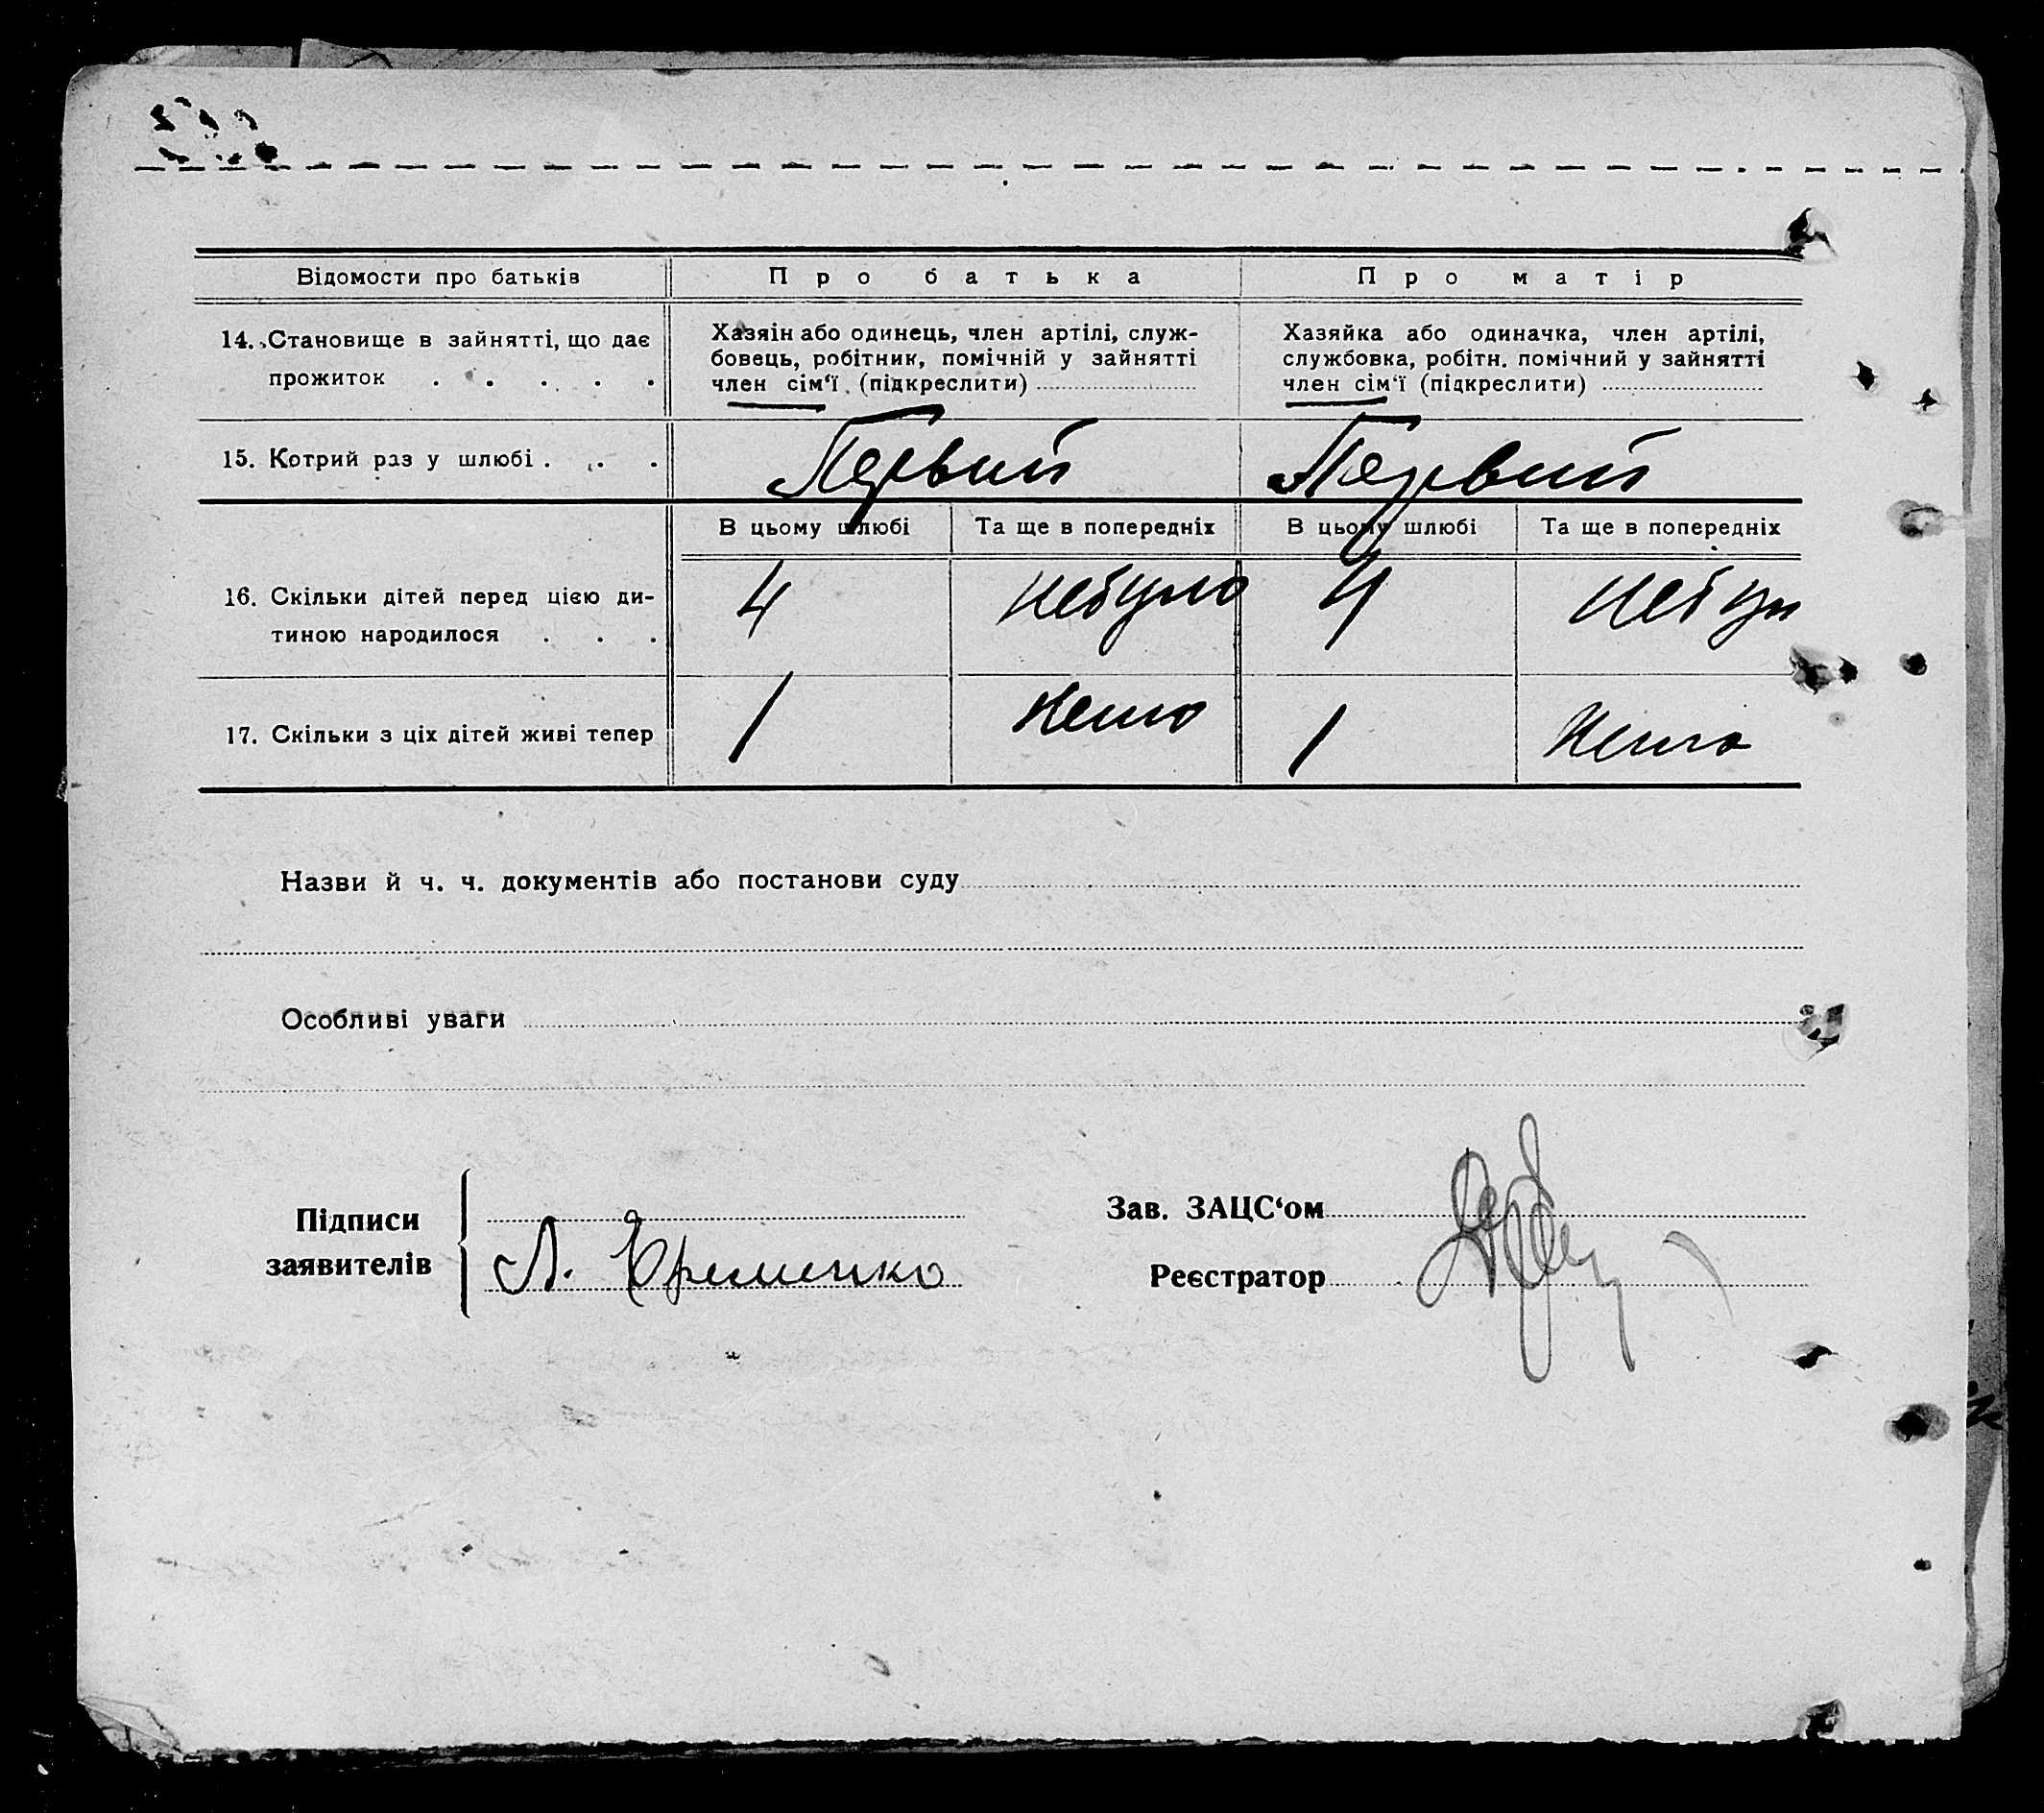 Відомости про батьків
Про батька
Про матір
14. Становище в зайнятті, що дає
прожиток . . . . .
Хазяін або одинець, член артілі, служ-
бовець, робітник, помічній у зайнятті
член сім‘ї (підкреслити)
Хазяйка або одиначка, член артілі,
службовка, робітн. помічний у зайнятті
член сім‘ї (підкреслити)
15. Котрий раз у шлюбі . . .
Первий
Первий
В цьому шлюбі
Та ще в попередніх
В цьому шлюбі
Та ще в попередніх
16. Скільки дітей перед цією ди-
тиною народилося . . .
4
небуло
4
17. Скільки з ціх дітей живі тепер
1
1
Назви й ч. ч. документів або постанови суду
Особливі уваги
Підписи
заявителів
Л. Єременко
Зав. ЗАЦС‘ом
Реєстратор